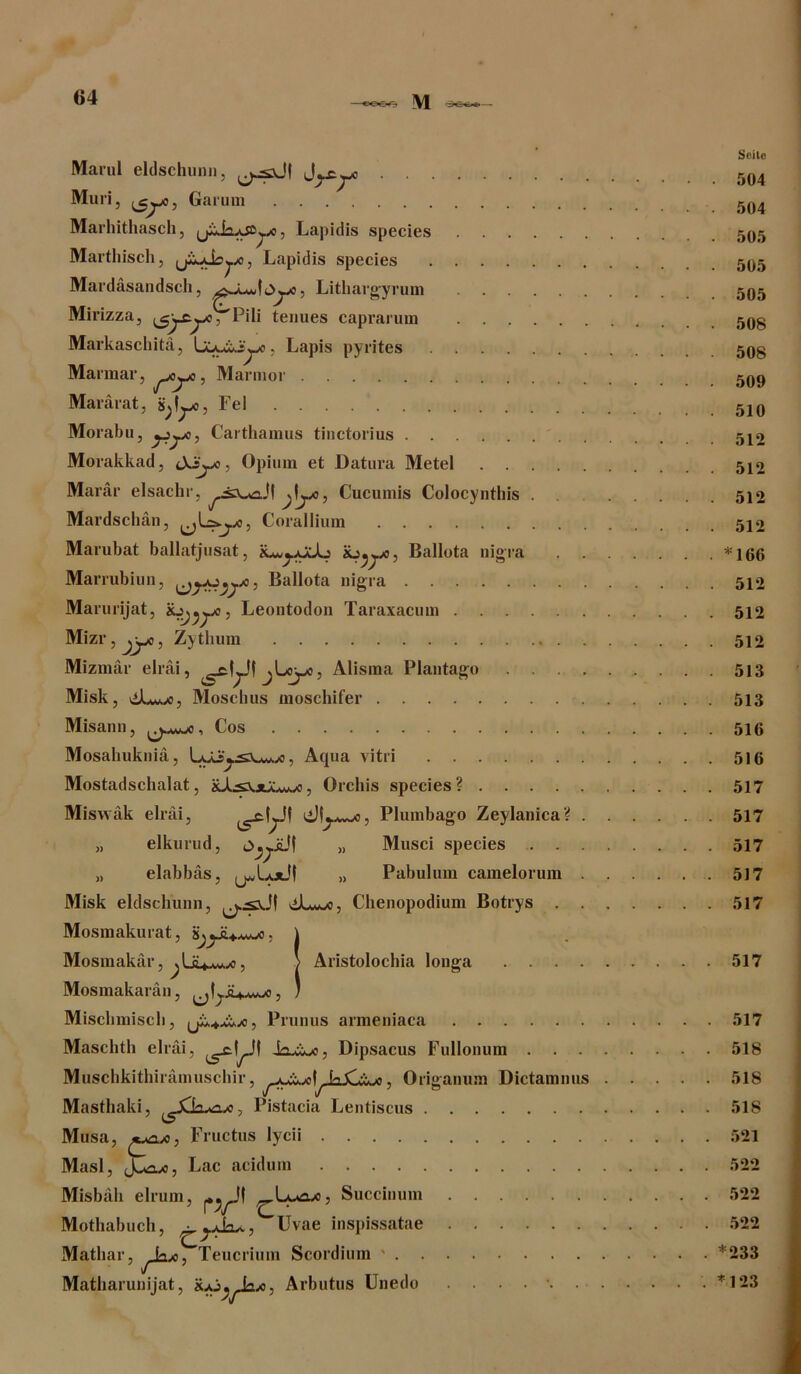 64
M
Seite
Marul eldschunn, مرعول الجن . . . 504
Muri, مرى, Garum . . . 504
Marhithasch, مرهيطش, Lapidis species . . . 505
Marthisch, مرطيش, Lapidis species . . . 505
Mardâsandsch, مرداسنج, Lithargyrum . . . 505
Mirizza, مرعزى, Pili tenues caprarum . . . 508
Markaschitâ, مرقشيتا, Lapis pyrites . . . 508
Marmar, مرمر, Marmor . . . 509
Marârat, مرارة, Fel . . . 510
Morabu, مربو, Carthamus tinctorius . . . 512
Morakkad, مرقد, Opium et Datura Metel . . . 512
Marâr elsachr, مرار الصخر, Cucumis Colocynthis . . . 512
Mardschân, مرجان, Corallium . . . 512
Marubat ballatjusat, مروية بلتيوسة, Ballota nigra . . . *166
Marrubiun, مروبيون, Ballota nigra . . . 512
Marurijat, مرورية, Leontodon Taraxacum . . . 512
Mizr, مزر, Zythum . . . 512
Mizmâr elrâi, مزمار الراعى, Alisma Plantago . . . 513
Misk, مسك, Moschus moschifer . . . 513
Misann, مسن, Cos . . . 516
Mosahukniâ, مسحوقنيا, Aqua vitri . . . 516
Mostadschalat, مستعجلة, Orchis species? . . . 517
Miswâk elrâi, مسواك الراعى, Plumbago Zeylanica? . . . 517
„ elkurud, القرود „ Musci species . . . 517
„ elabbâs, العباس „ Pabulum camelorum . . . 517
Misk eldschunn, مسك الجن, Chenopodium Botrys . . . 517
Mosmakurat, مسمقورة,
Mosmakâr, مسمقار, Aristolochia longa . . . 517
Mosmakarân, مسمقران,
Mischmisch, مشمش, Prunus armeniaca . . . 517
Maschth elrâi, مشط الراعى, Dipsacus Fullonum . . . 518
Muschkithirâmuschir, مشكطرامشير, Origanum Dictamnus . . . 518
Masthaki, مصطكى, Pistacia Lentiscus . . . 518
Musa, مصع, Fructus lycii . . . 521
Masl, مصل, Lac acidum . . . 522
Misbâh elrum, مصباح الروم, Succinum . . . 522
Mothabuch, مطبوخ, Uvae inspissatae . . . 522
Mathar, مطر, Teucrium Scordium . . . *233
Matharunijat, مطرونية, Arbutus Unedo . . . *123